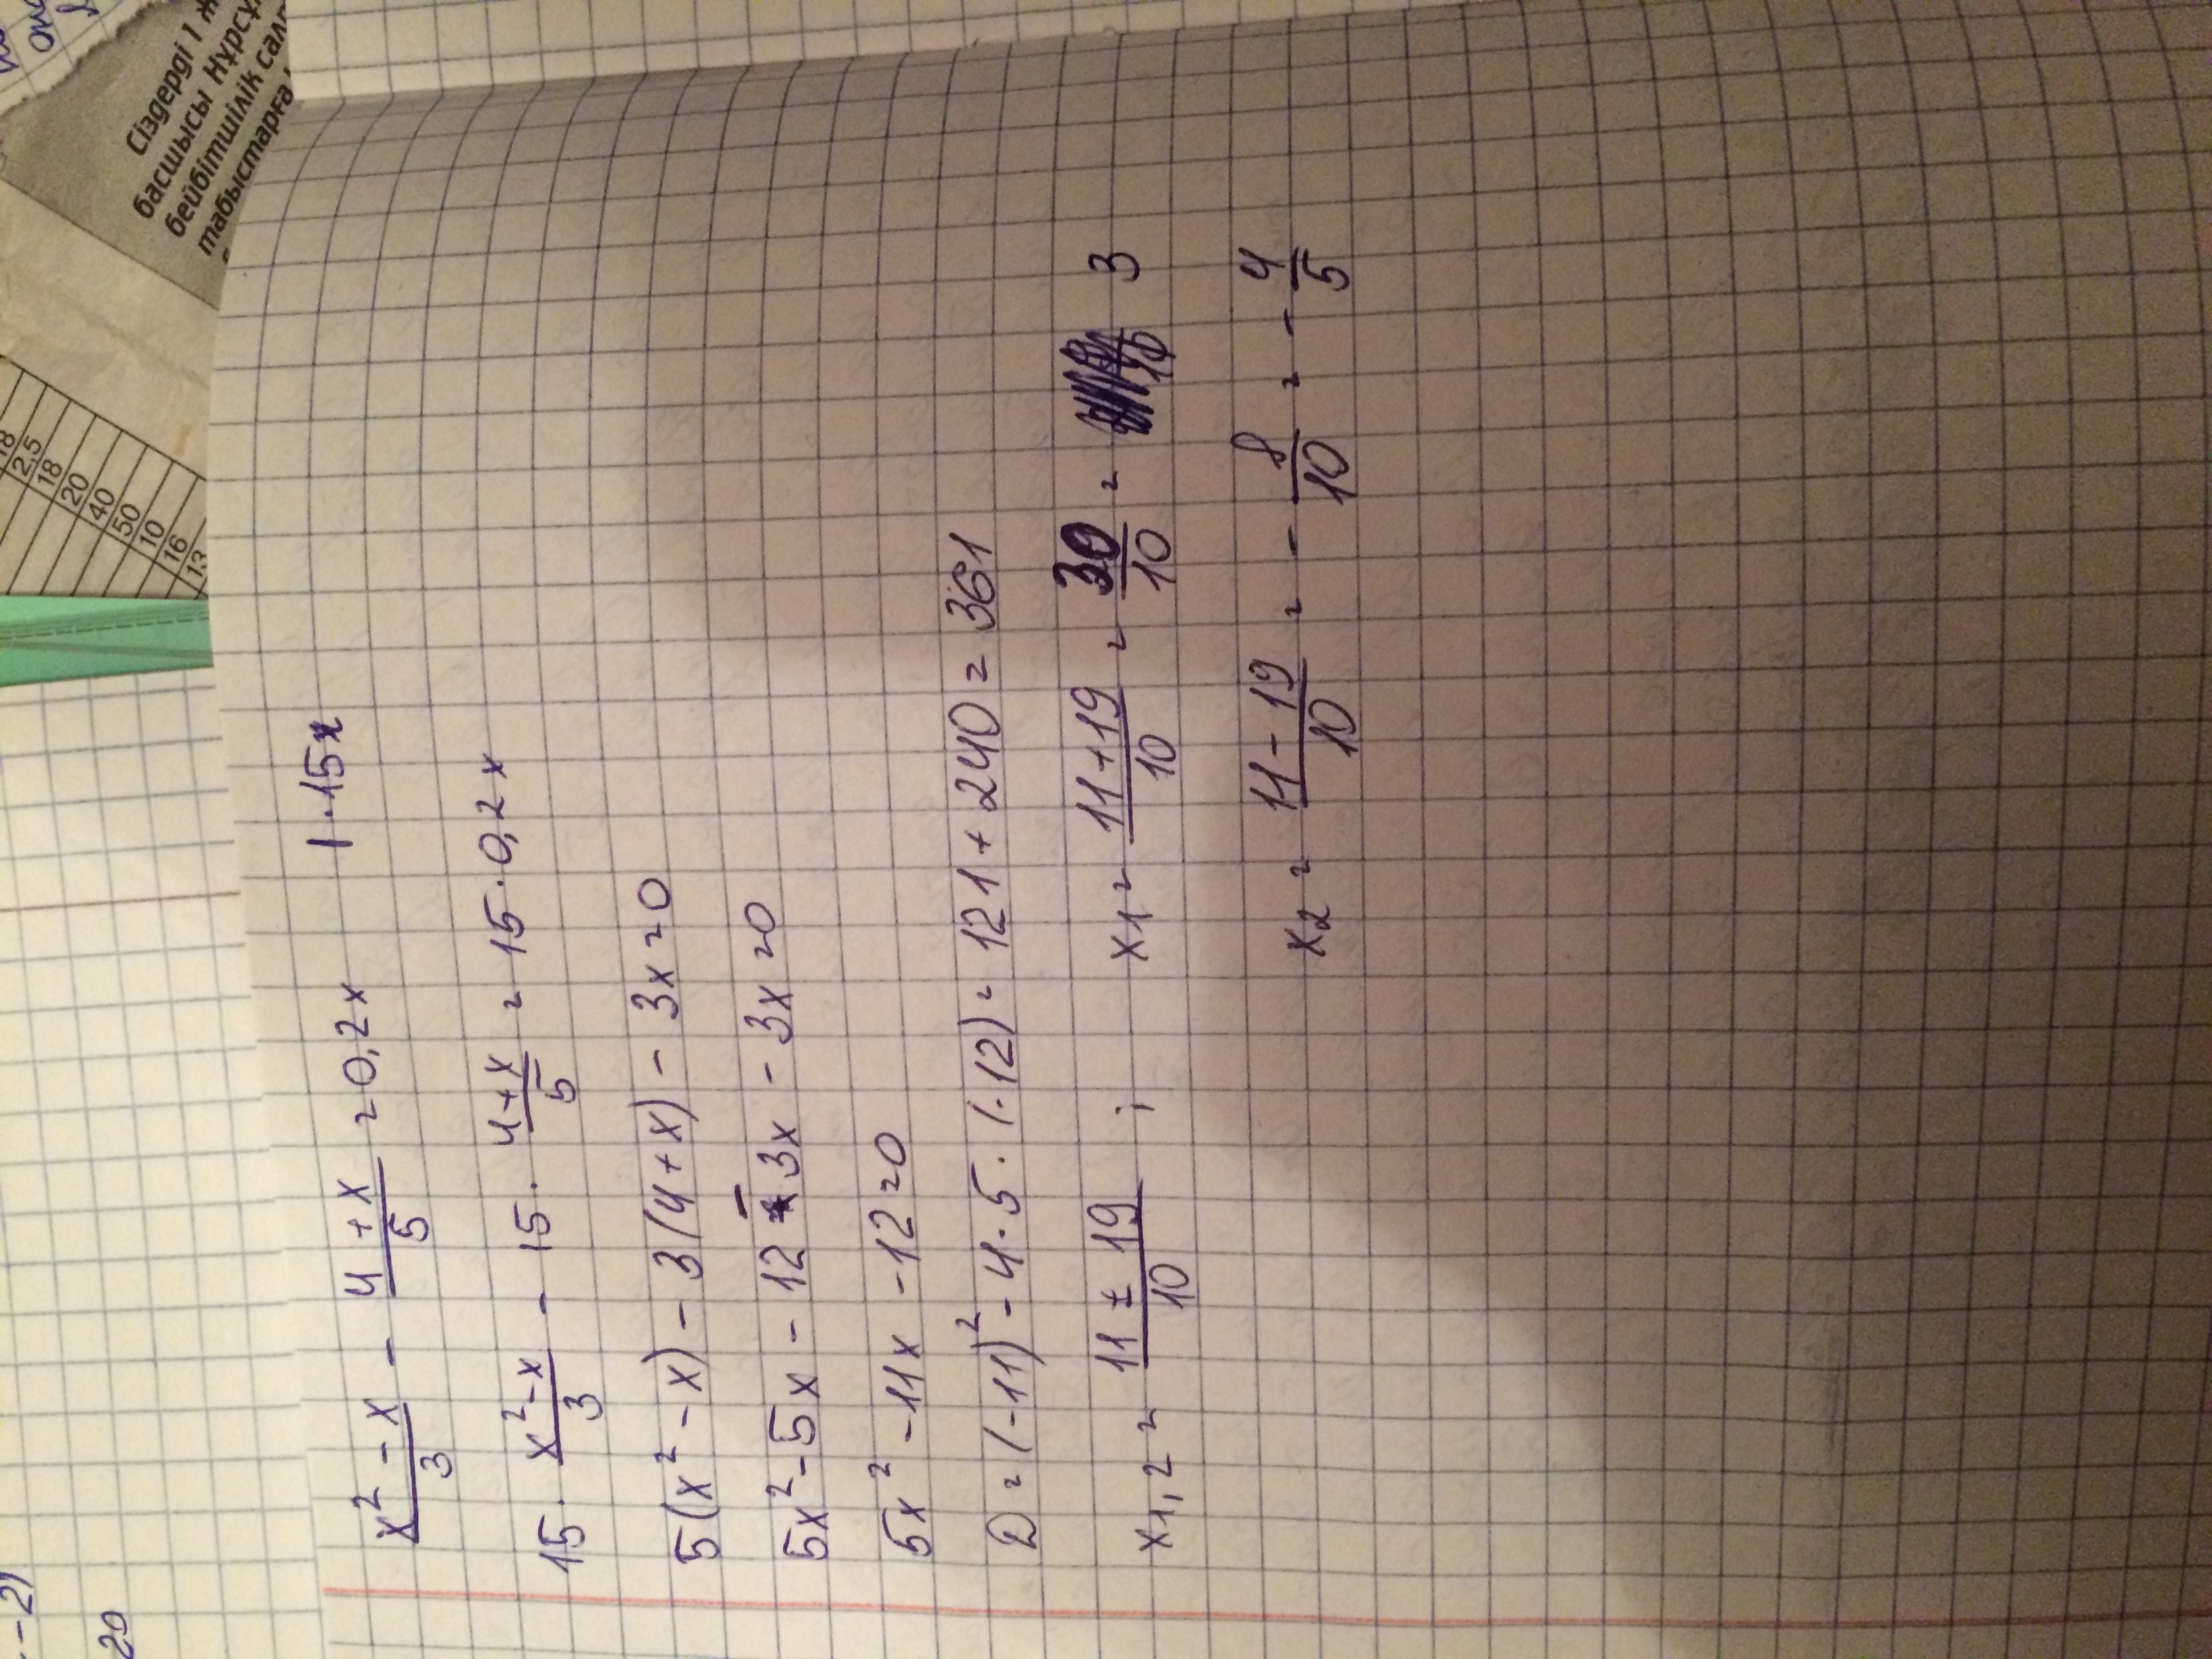 x² - x / 3 - 4 + x / 5 = 0,2x | · 15x
15 · x² - x / 3 - 15 · 4 + x / 5 = 15 · 0,2x
5(x² - x) - 3(4 + x) - 3x = 0
5x² - 5x - 12 - 3x - 3x = 0
5x² - 11x - 12 = 0
D = (-11)² - 4 · 5 · (-12) = 121 + 240 = 361
x1,2 = 11 ± 19 / 10 ; x1 = 11 + 19 / 10 = 30 / 10 = 3
x2 = 11 - 19 / 10 = - 8 / 10 = - 4 / 5
Сіздерді 1
басшысы Нұрсұ
бейбітшілік сал
табыстарға
18
2,5
18
20
40
50
10
16
13
- 2)
20